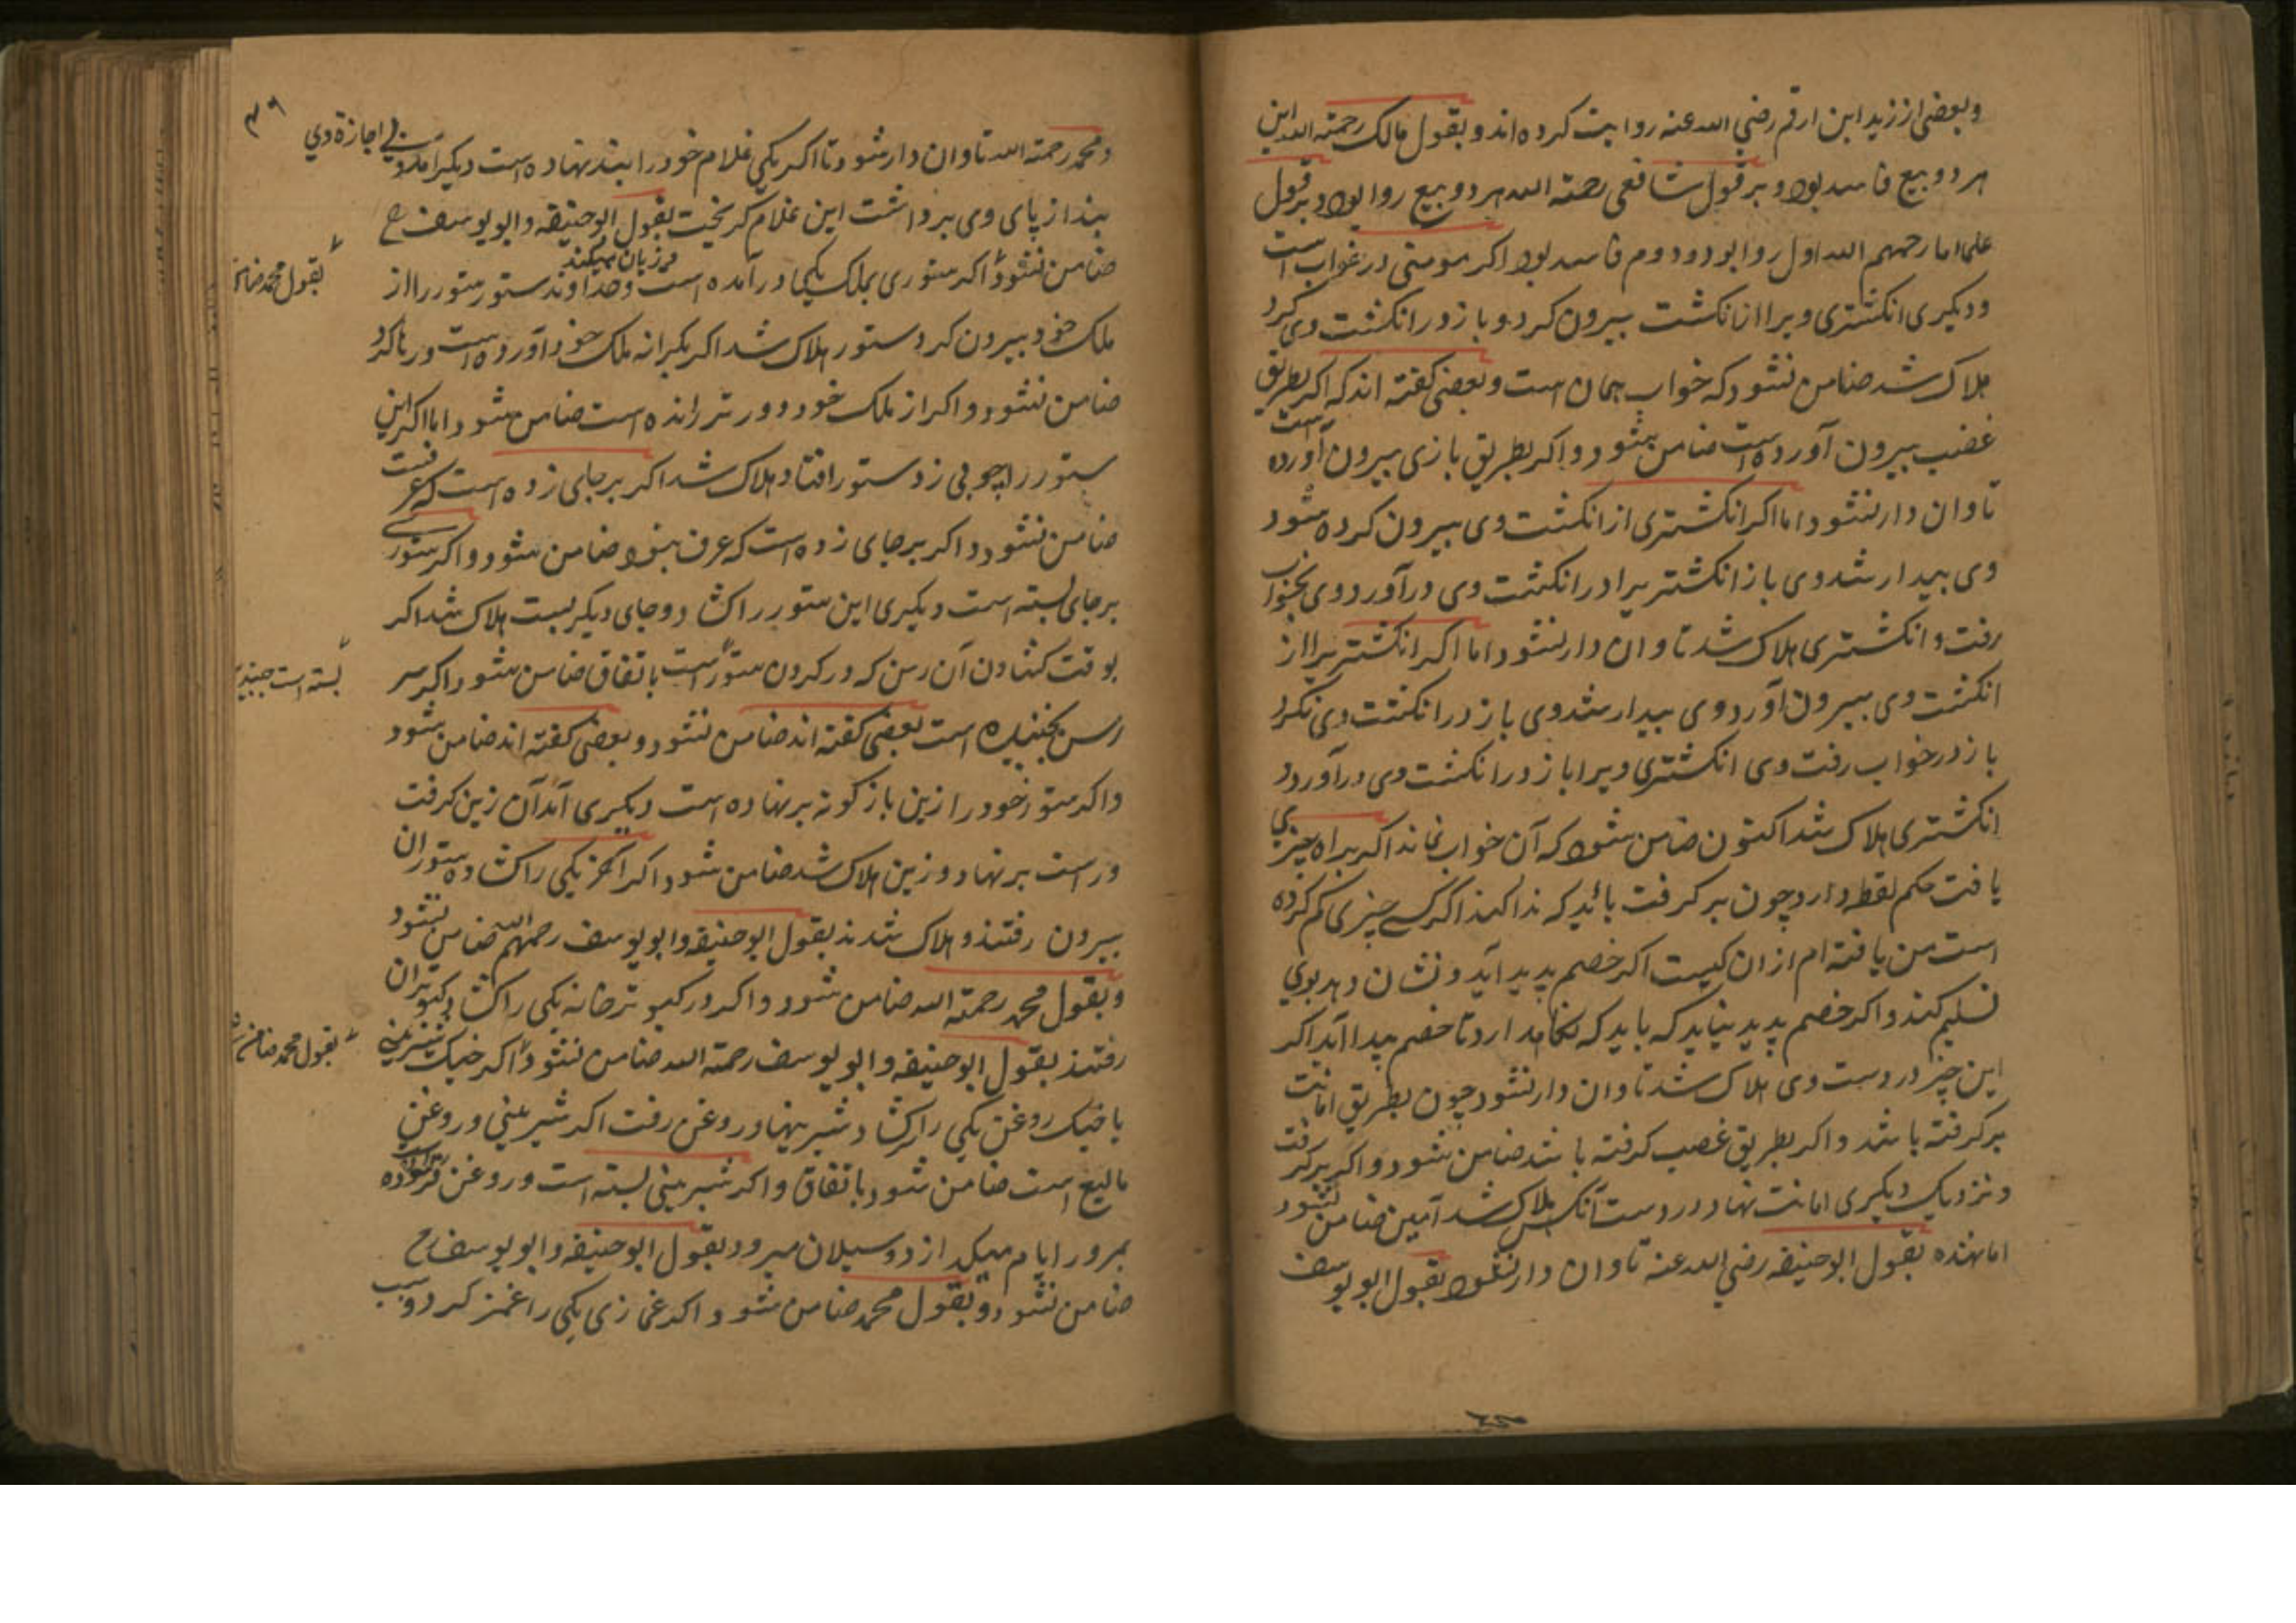 وبعضی از زید ابن ارقم رضی الله عنه روایت کرده اند و بقول مالک رحمته الله این
هر دو بیع فاسد بود و بر قول شافعی رحمته الله هر دو بیع روا بود و بر قول
علماء ما رحمهم الله اول روا بود و دوم فاسد بود اکر مومنی در خواب است
و دیکری انکشتری ویرا از انکشت بیرون کرد و باز در انکشت وی کرد
هلاک شد ضامن نشود که خواب همان است و بعضی کفته اند که اکر بطریق
غضب بیرون آورده است ضامن شود و اکر بطریق بازی بیرون آورده است
تاوان دار نشود اما اکر انکشتری از انکشت وی بیرون کرده شود
وی بیدار شد وی باز انکشتریرا در انکشت وی درآورد و وی بخواب
رفت و انکشتری هلاک شد تاوان دار نشود اما اکر انکشتریرا از
انکشت وی بیرون آورد وی بیدار شد وی باز در انکشت وی نکرد
باز در خواب رفت وی انکشتری ویرا باز در انکشت وی درآورد
انکشتری هلاک شد اکنون ضامن شود که آن خواب نماند اکر براه چیزی
یافت حکم لقطه دارد چون بر کرفت باید که ندا کند اکر کسے چیزی کم کرده
است من یافته ام از ان کیست اکر خصم پدید آید و نشان دهد بوی
تسلیم کند و اکر خصم پدید نیاید که باید که نکاهدارد تا خصم پیدا آید اکر
این چیز در دست وی هلاک شد تاوان دار نشود چون بطریق امانت
بر کرفته باشد و اکر بطریق غصب کرفته باشد ضامن شود و اکر بر کرفت
و نزدیک دیکری امانت نهاد و در دست آنکس هلاک شد امین ضامن نشود
اما نهنده بقول ابو حنیفه رضی الله عنه تاوان دار نشود بقول ابو یوسف
۳۶
و محمد رحمته الله تاوان دار شود تا اکر یکی غلام خود را بند نهاده است دیکر آمد و بی اجازة وی
بند از پای وی برداشت این غلام کریخت بقول ابو حنیفه و ابو یوسف رح
ضامن نشود و اکر ستوری بملک یکی درآمده است و زیان میکند و خداوند ستور ستور را از
بقول محمد ضامن
ملک خود بیرون کرد ستور هلاک شد اکر بکرانه ملک خود آورده است و رها کرد
ضامن نشود و اکر از ملک خود دور تر رانده است ضامن شود اما اکر این
ستور را چوبی زد ستور افتاد هلاک شد اکر بر جای زده است که عرف است
ضامن نشود و اکر بر جای زده است که عرف نبود ضامن شود و اکر ستوری
بر جای بسته است دیکری این ستور را کشاد و جای دیکر بست هلاک شد اکر
بوقت کشادن آن رسن که در کردن ستور است باتفاق ضامن شود و اکر سر
بسته است جنبیده
رسن بجنبیده است بعضی کفته اند ضامن نشود و بعضی کفته اند ضامن شود
و اکر ستور خود را زین باز کونه بر نهاده است دیکری آمد آن زین کرفت
و راست بر نهاد و زین هلاک شد ضامن شود اکر آخر یکی را کشاد و ستوران
بیرون رفتند و هلاک شدند بقول ابو حنیفه و ابو یوسف رحمهم الله ضامن نشود
و بقول محمد رحمته الله ضامن شود و اکر در کبوتر خانه یکی را کشاد کبوتران
رفتند بقول ابو حنیفه و ابو یوسف رحمته الله ضامن نشود و اکر خیک شیرینی
بقول محمد ضامن شود
یا خیک روغن یکی را کشاد شیرینی و روغن رفت اکر شیرینی و روغن
مایع است ضامن شود باتفاق و اکر شیرینی بسته است و روغن
بمرور ایام میکدازد و سیلان میرود بقول ابو حنیفه و ابو یوسف رح
ضامن نشود و بقول محمد ضامن شود و اکر غمازی یکی را غمز کرد و سبب